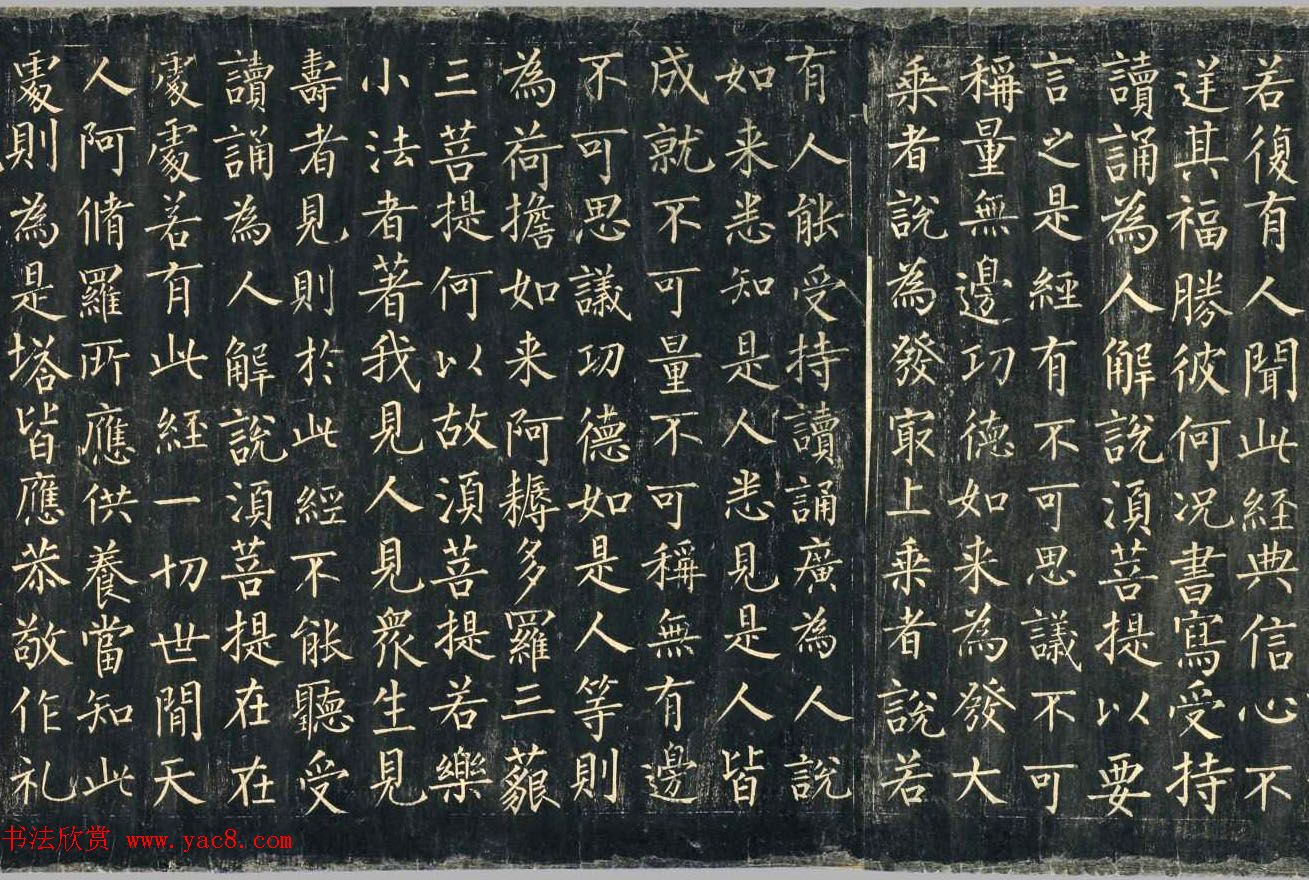 若復有人聞此經典信心不
逆其福勝彼何況書寫受持
讀誦為人解說須菩提以要
言之是經有不可思議不可
稱量無邊功德如来為發大
乘者說為發最上乘者說若
有人能受持讀誦廣為人說
如来悉知是人悉見是人皆
成就不可量不可稱無有邊
不可思議功德如是人等則
為荷擔如来阿耨多羅三藐
三菩提何以故須菩提若樂
小法者著我見人見眾生見
壽者見則於此經不能聽受
讀誦為人解說須菩提在在
處處若有此經一切世間天
人阿脩羅所應供養當知此
處則為是塔皆應恭敬作礼
书法欣赏 www.yac8.com